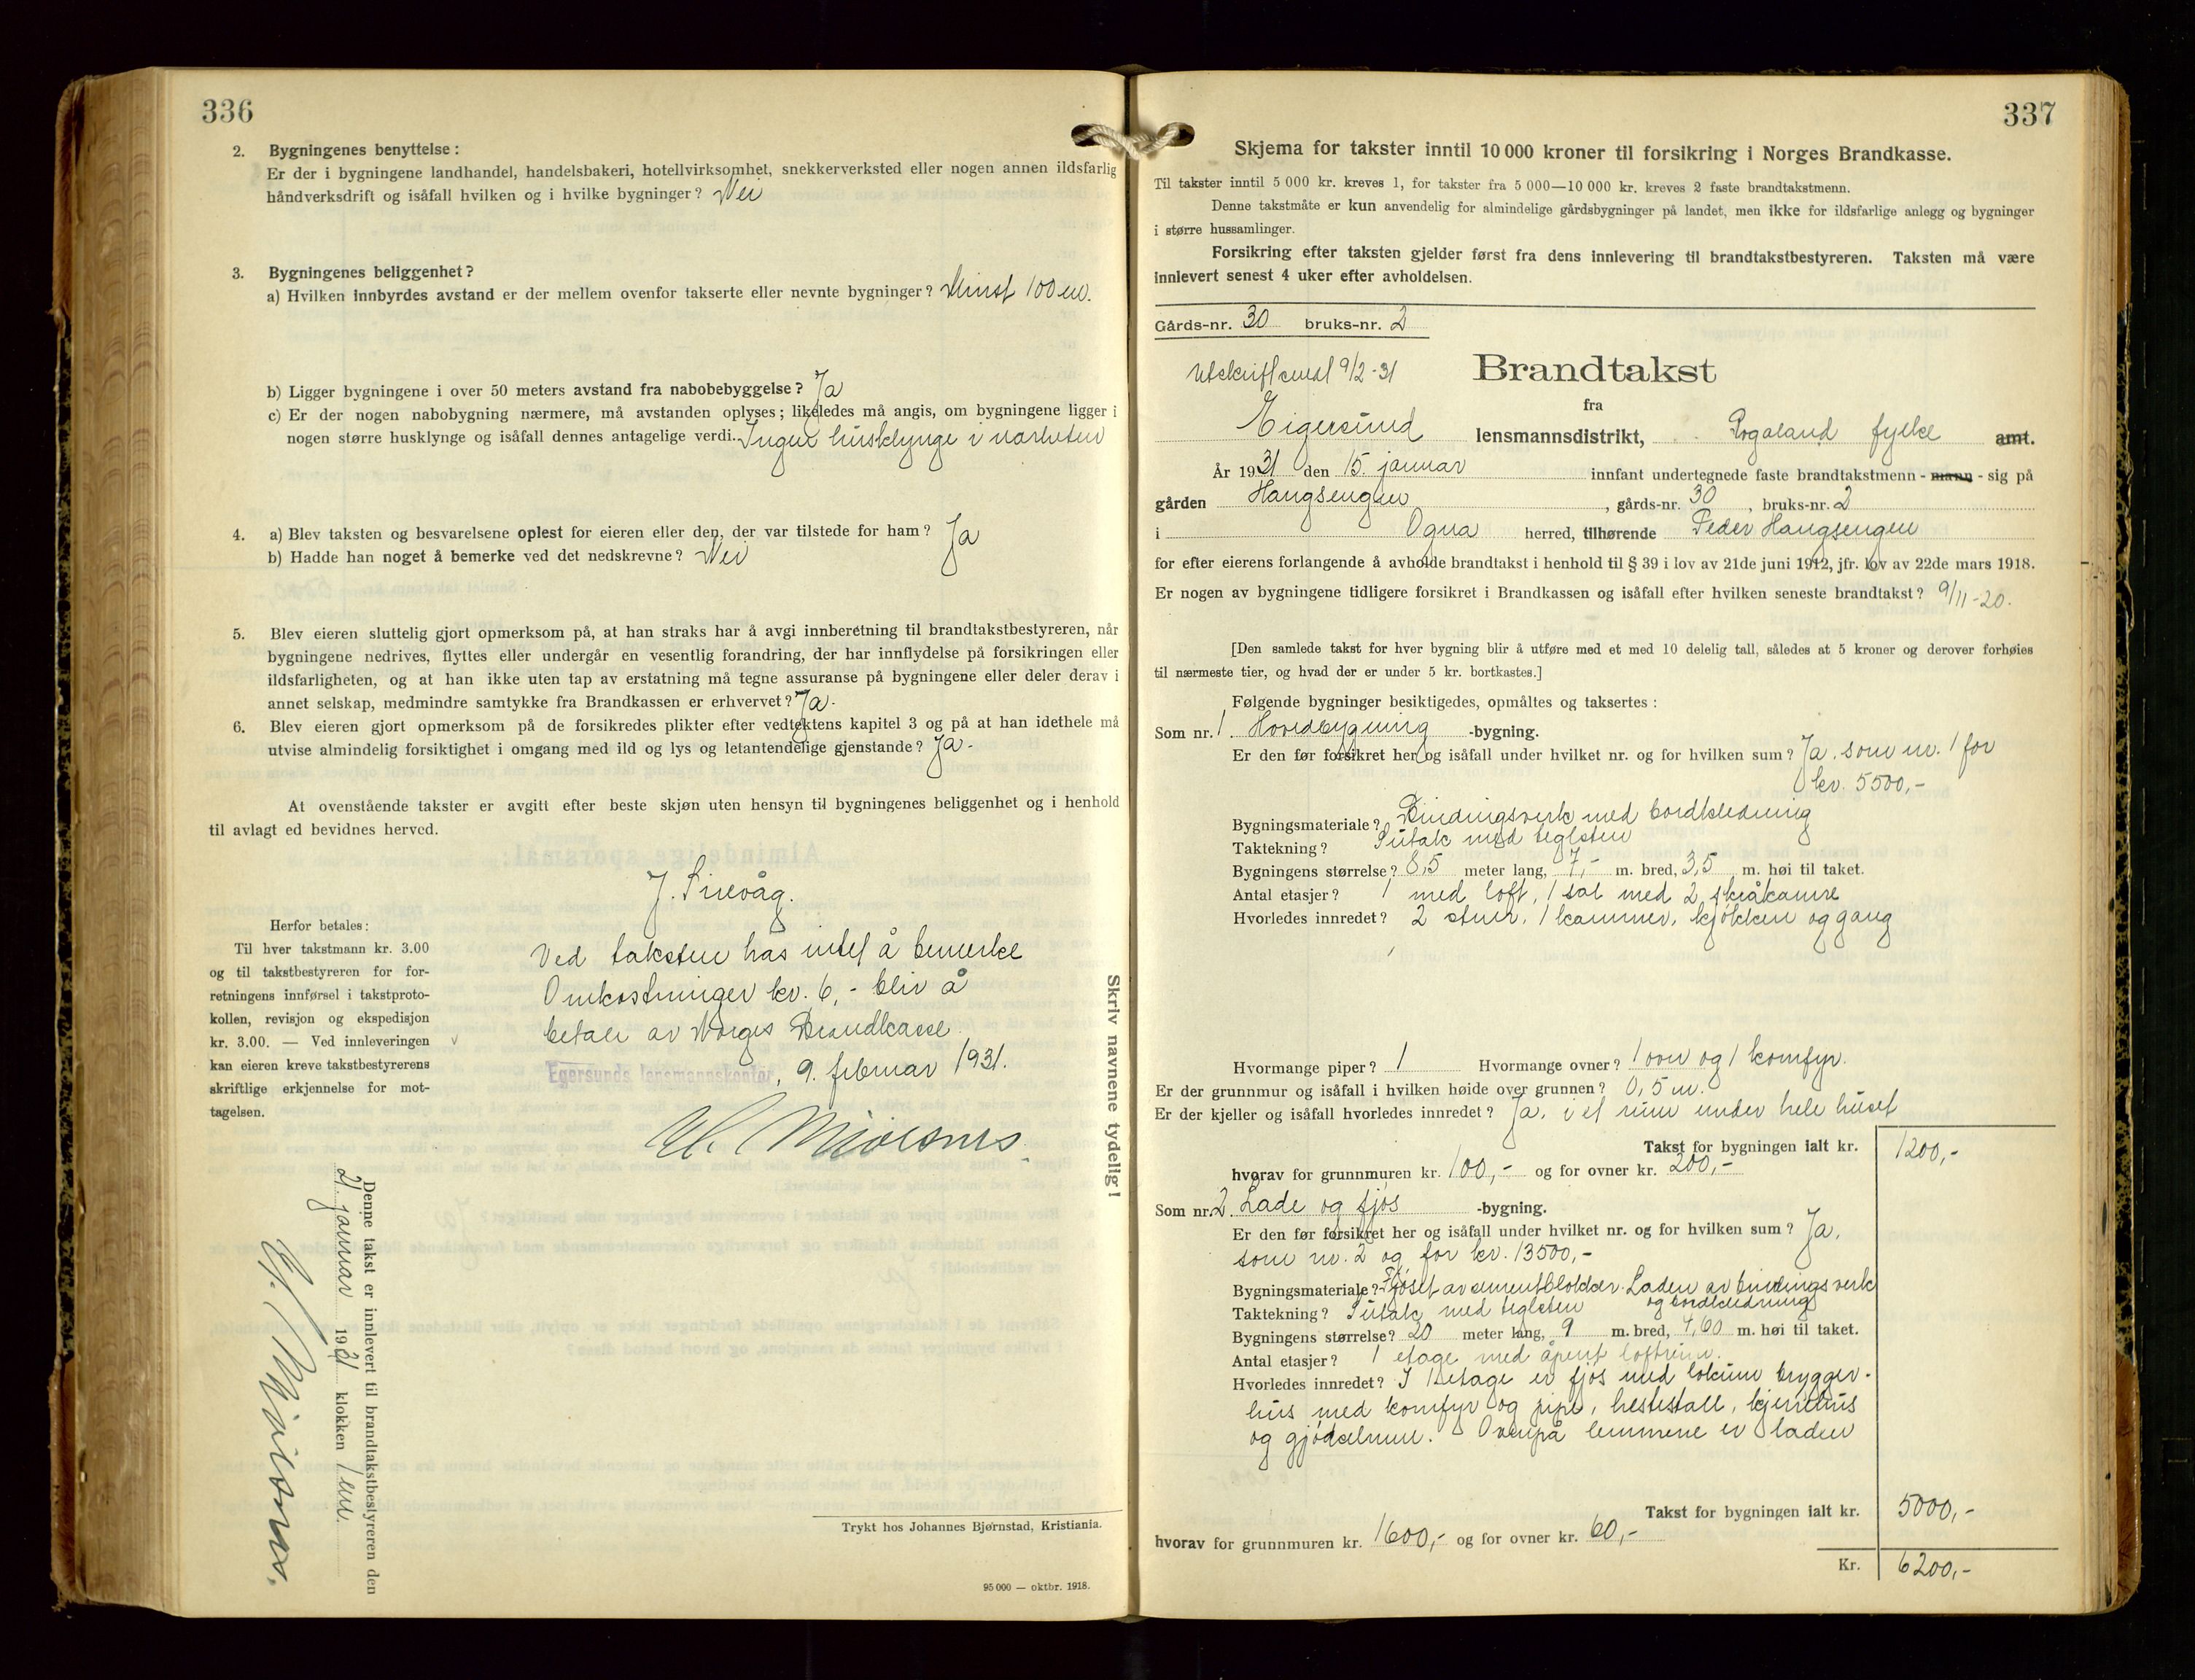 336
2. Bygningenes benyttelse :
Er der i bygningene landhandel, handelsbakeri, hotellvirksomhet, snekkerverksted eller nogen annen ildsfarlig
håndverksdrift og isåfall hvilken og i hvilke bygninger? Nei
3. Bygningenes beliggenhet?
a) Hvilken innbyrdes avstand er der mellem ovenfor takserte eller nevnte bygninger? Minst 100 m.
b) Ligger bygningene i over 50 meters avstand fra nabobebyggelse? Ja
c) Er der nogen nabobygning nærmere, må avstanden oplyses; likeledes må angis, om bygningene ligger i
nogen større husklynge og isåfall dennes antagelige verdi. Ingen husklynge i nærheten
4. a) Blev taksten og besvarelsene oplest for eieren eller den, der var tilstede for ham? Ja
b) Hadde han noget å bemerke ved det nedskrevne? Nei
5. Blev eieren sluttelig gjort opmerksom på, at han straks har å avgi innberetning til brandtakstbestyreren, når
bygningene nedrives, flyttes eller undergår en vesentlig forandring, der har innflydelse på forsikringen eller
ildsfarligheten, og at han ikke uten tap av erstatning må tegne assuranse på bygningene eller deler derav i
annet selskap, medmindre samtykke fra Brandkassen er erhvervet? Ja.
6. Blev eieren gjort opmerksom på de forsikredes plikter efter vedtektens kapitel 3 og på at han idethele må
utvise almindelig forsiktighet i omgang med ild og lys og letantendelige gjenstande? Ja.
At ovenstående takster er avgitt efter beste skjøn uten hensyn til bygningenes beliggenhet og i henhold
til avlagt ed bevidnes herved.
J. Sirevåg.
Herfor betales:
Til hver takstmann kr. 3.00
og til takstbestyreren for for-
retningens innførsel i takstproto-
kollen, revisjon og ekspedisjon
kr. 3.00. — Ved innleveringen
kan eieren kreve takstbestyrerens
skriftlige erkjennelse for mot-
tagelsen.
Ved taksten has intet å bemerke
Omkostninger kr. 6,- blir å
betale av Norges Brandkasse
Egersunds lensmannskontor, 9. februar 1931.
Skriv navnene tydelig!
Denne takst er innlevert til brandtakstbestyreren den
21. januar 1931 klokken 1 em.
Trykt hos Johannes Bjørnstad, Kristiania.
95 000 — oktbr. 1918.
337
Skjema for takster inntil 10 000 kroner til forsikring i Norges Brandkasse.
Til takster inntil 5 000 kr. kreves 1, for takster fra 5 000—10 000 kr. kreves 2 faste brandtakstmenn.
Denne takstmåte er kun anvendelig for almindelige gårdsbygninger på landet, men ikke for ildsfarlige anlegg og bygninger
i større hussamlinger.
Forsikring efter taksten gjelder først fra dens innlevering til brandtakstbestyreren. Taksten må være
innlevert senest 4 uker efter avholdelsen.
Gårds-nr. 30 bruks-nr. 2
Utskrift sendt 9/2-31
Brandtakst
fra
Eigersund lensmannsdistrikt, Rogaland fylke amt.
År 1931 den 15. januar innfant undertegnede faste brandtakstmenn - mann - sig på
gården Haugsengen, gårds-nr. 30, bruks-nr. 2
i Ogna herred, tilhørende Peder Haugsengen
for efter eierens forlangende å avholde brandtakst i henhold til § 39 i lov av 21de juni 1912, jfr. lov av 22de mars 1918.
Er nogen av bygningene tidligere forsikret i Brandkassen og isåfall efter hvilken seneste brandtakst? 9/11-20.
[Den samlede takst for hver bygning blir å utføre med et med 10 delelig tall, således at 5 kroner og derover forhøies
til nærmeste tier, og hvad der er under 5 kr. bortkastes.]
Følgende bygninger besiktigedes, opmåltes og taksertes :
Som nr. 1 Hovedbygning -bygning.
Er den før forsikret her og isåfall under hvilket nr. og for hvilken sum? Ja, som nr. 1 for
kr. 5500,-
Bygningsmateriale? Bindingsverk med bordkledning
Taktekning? Sutak med teglsten
Bygningens størrelse? 8,5 meter lang, 7,- m. bred, 3,5 m. høi til taket.
Antal etasjer? 1 med loft, 1 sal med 2 skråkamre
Hvorledes innredet? 2 stuer, 1 kammer, kjøkken og gang
Hvormange piper? 1 Hvormange ovner? 1 ovn og 1 komfyr.
Er der grunnmur og isåfall i hvilken høide over grunnen? 0,5 m.
Er der kjeller og isåfall hvorledes innredet? Ja, i et rum under hele huset
Takst for bygningen ialt kr. 1200,-
hvorav for grunnmuren kr. 100,- og for ovner kr. 200,-
Som nr. 2 Lade og fjøs -bygning.
Er den før forsikret her og isåfall under hvilket nr. og for hvilken sum? Ja,
som nr. 2 og for kr. 13500,-
Bygningsmateriale? Fjøset av sementblokker. Laden av bindingsverk
og bordkledning
Taktekning? Sutak med teglsten
Bygningens størrelse? 20 meter lang, 9 m. bred, 4,60 m. høi til taket.
Antal etasjer? 1 etage med åpent loftrum.
Hvorledes innredet? I 1 etage er fjøs med lokum brygger-
hus med komfyr og pipe, hestestall, kjerrehus
og gjødselrum. Ovenpå lemmene er laden
Takst for bygningen ialt kr. 5000,-
hvorav for grunnmuren kr. 1600,- og for ovner kr. 60,-
Kr. 6200,-